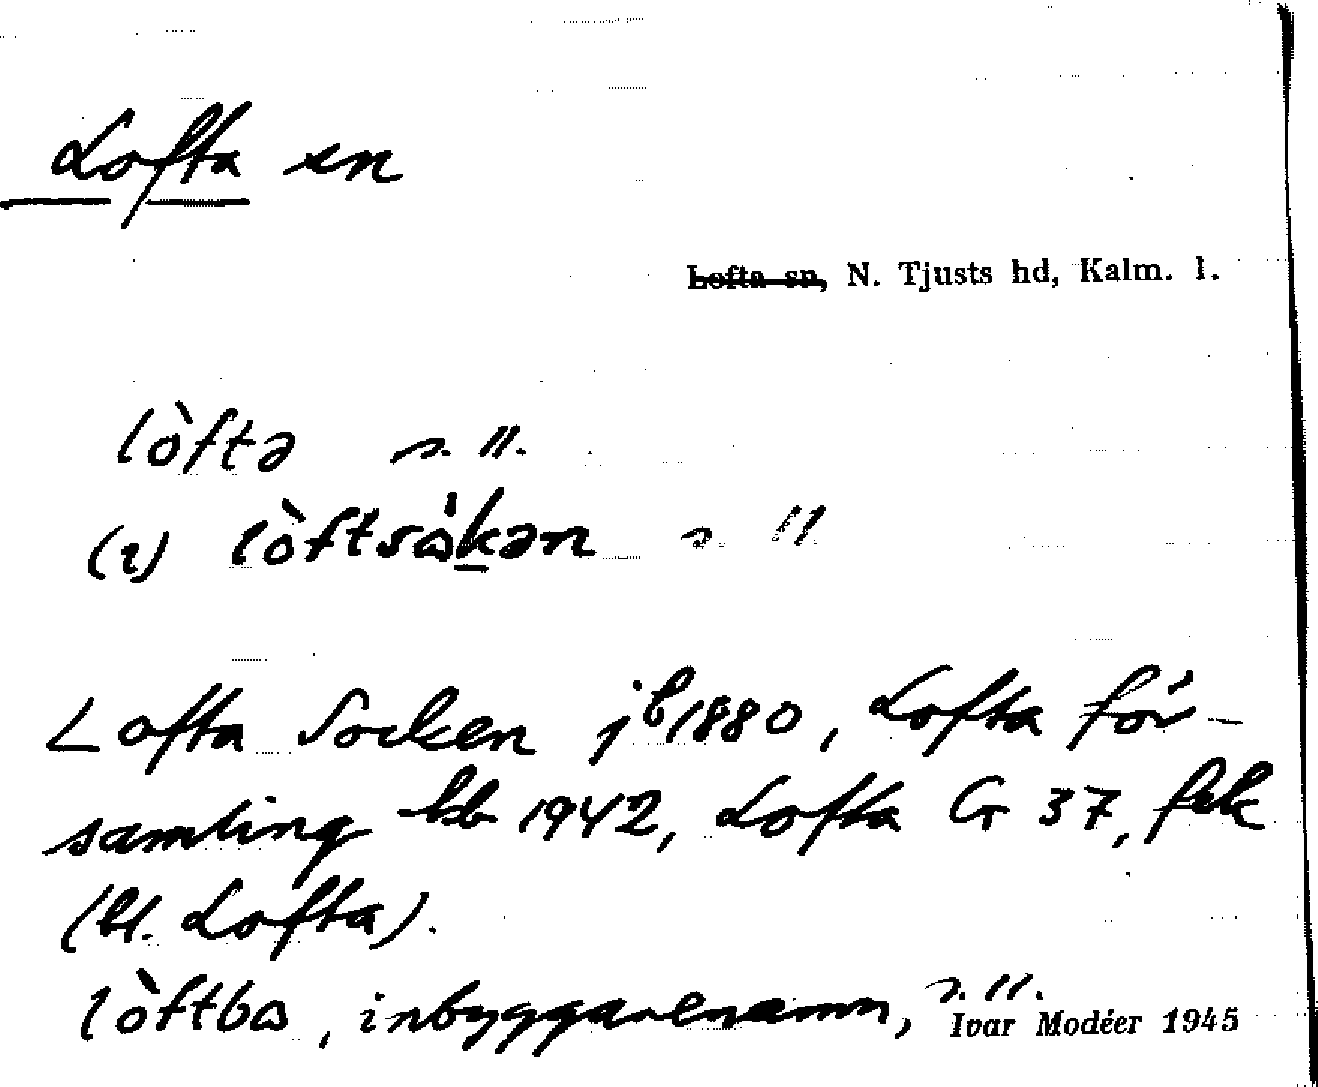 Lofta sn
Lofta sn, N. Tjusts hd, Kalm. l.
lòftə s. ll.
(i) lòftsåkən s. ll
Lofta Socken jb 1880, Lofta för-
samling kb 1942, Lofta G 37, fek
(bl. Lofta).
lòftba, inbyggarenamn, s. ll.
Ivar Modéer 1945